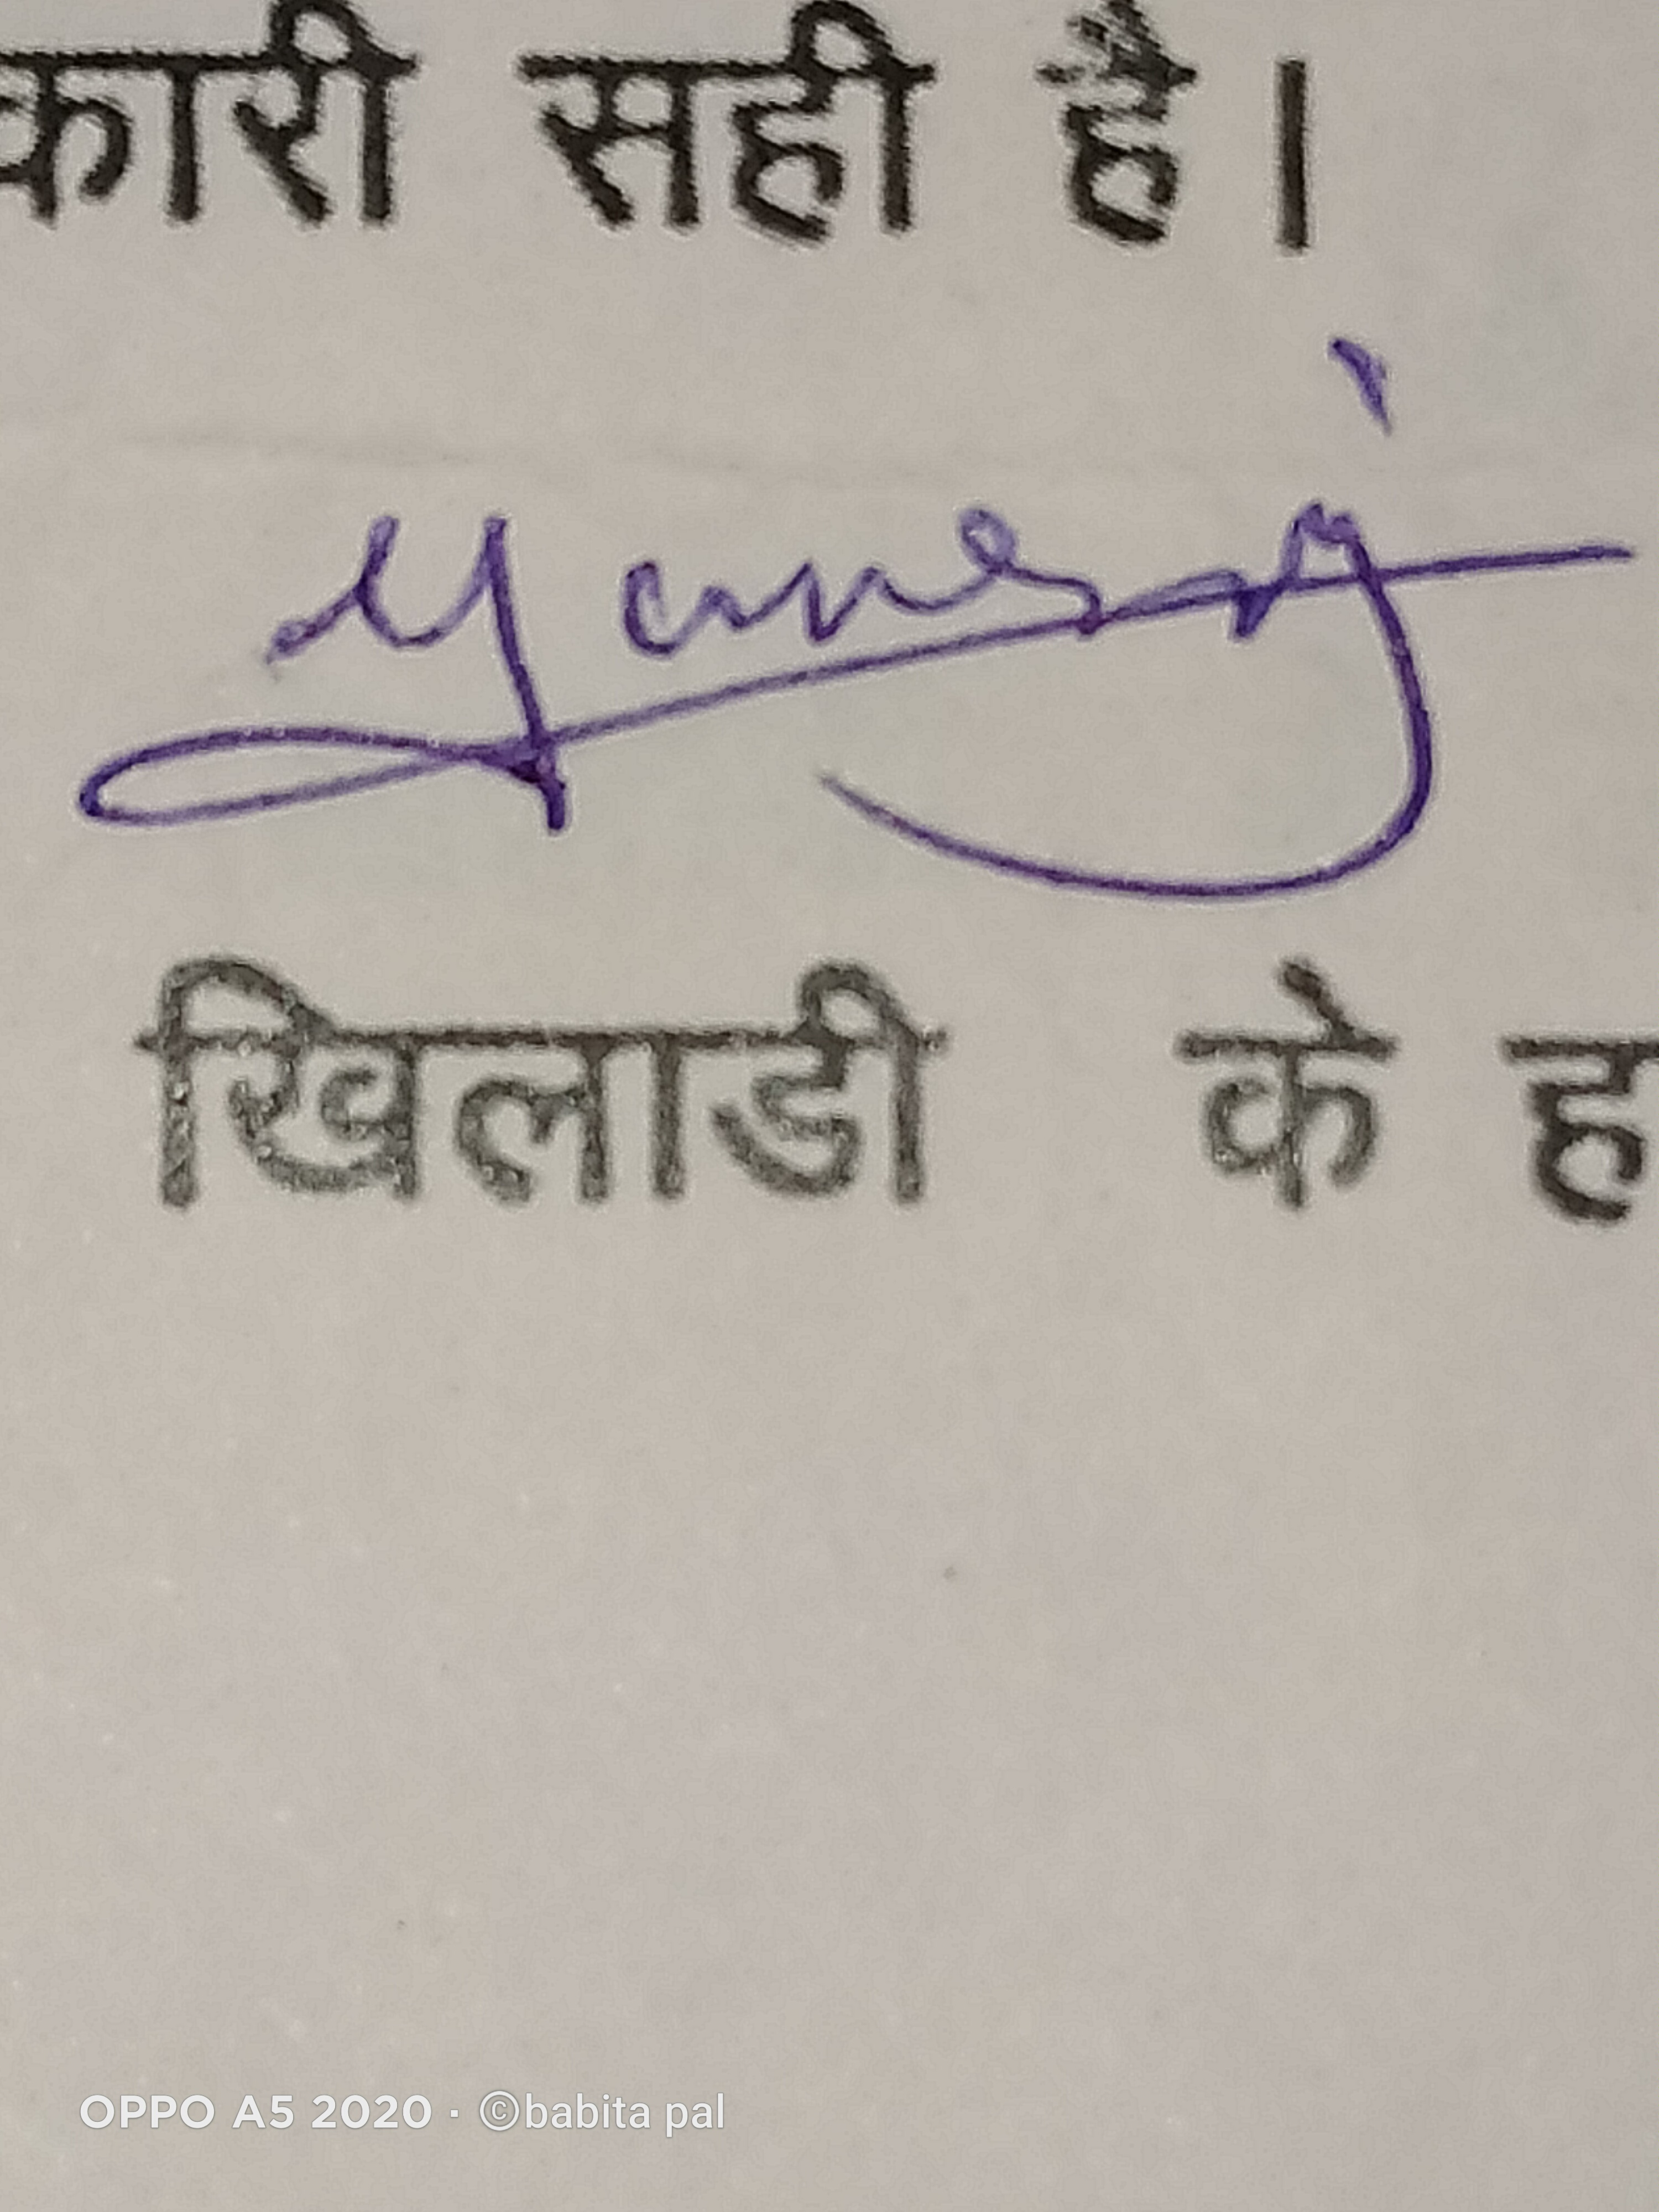 कारी सही है।
खिलाडी के ह
OPPO A5 2020 · ©babita pal